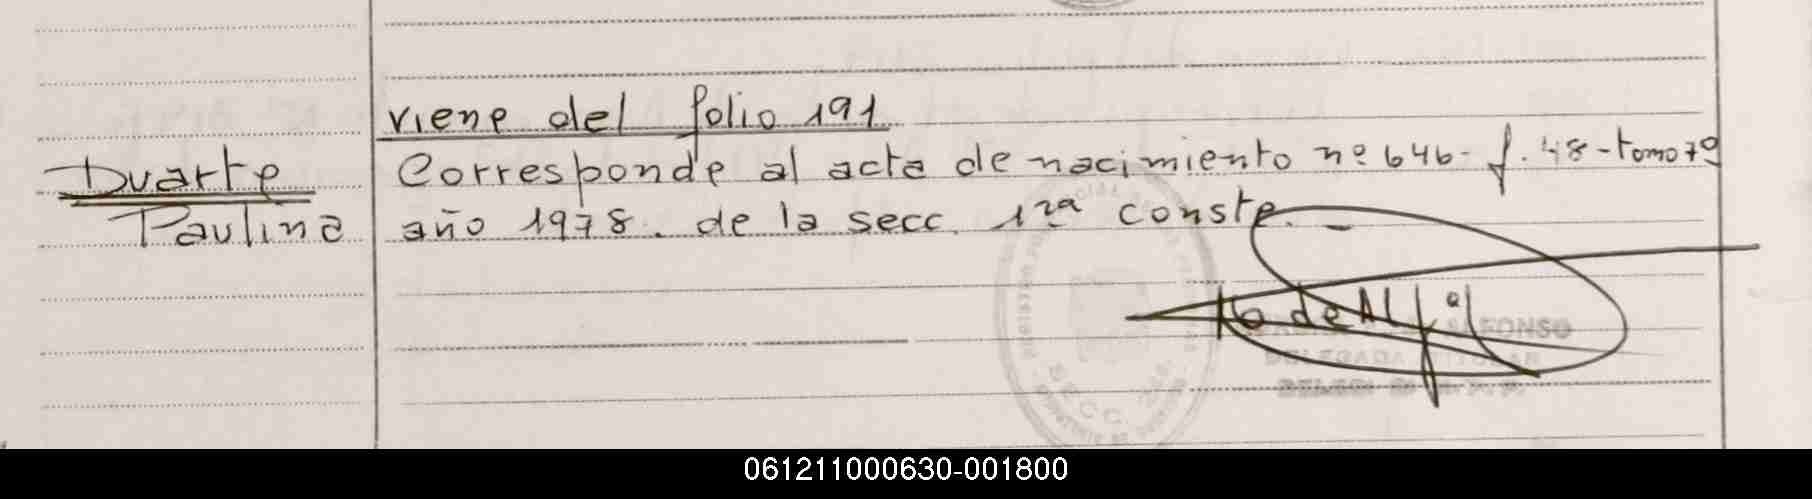 viene del folio 191
Duarte
Corresponde al acta de nacimiento nº 646- f. 48-tomo 79
Paulina
año 1978. de la secc. 1ra conste. -
ALFONSO
DELEGADA TITULAR
SECC.
061211000630-001800